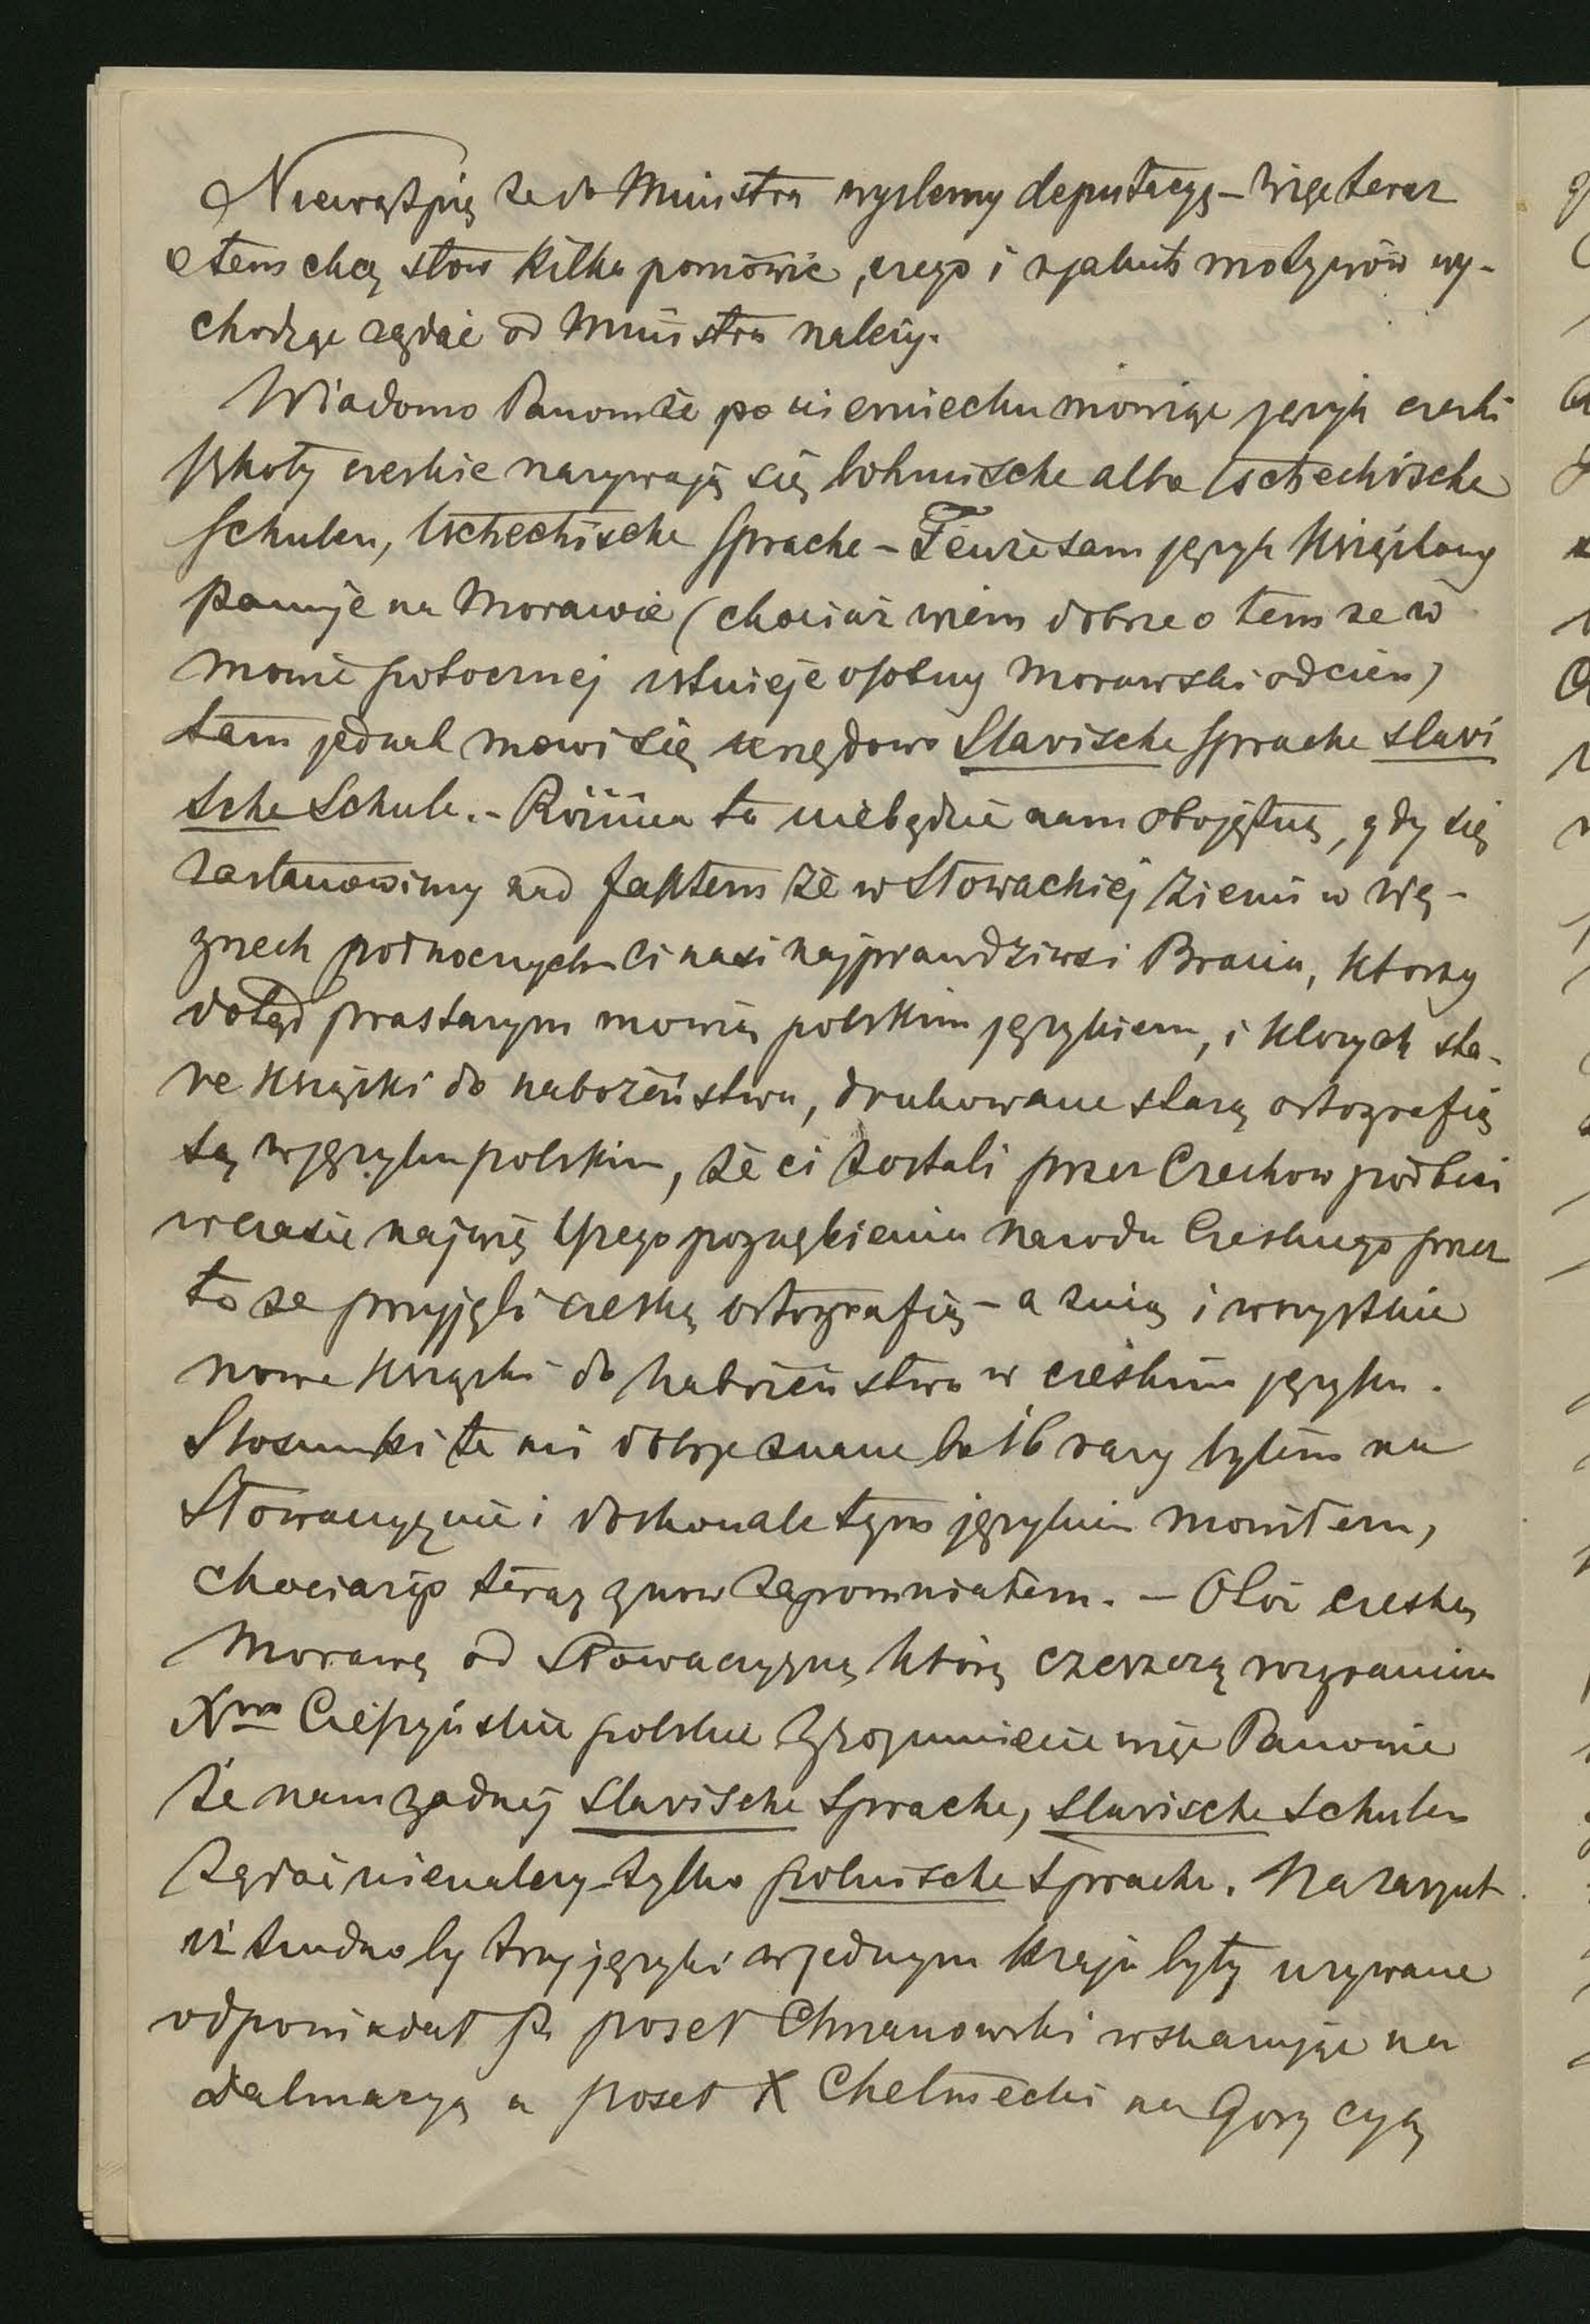 Niewątpię że do Ministra wyslemy deputacyę – więc teraz
o tem chcę słow kilka pomówic, czego i z jakich motywów wy-
chodząc rządać od Ministra należy.
Wiadomo Panom że po niemiecku mówiąc język czeski
szkoły czeskie nazywają się bohmische albo tschechische
Schulen, tschechische Sprache – Tenże sam język książkowy
panuje na Morawie (chociaż wiem dobrze o tem ze w
mowie potocznej istnieje osobny morawski odcień)
tam jednak mowi się urzędowo Slavische Sprache slavi
sche Schule. – Różnica ta niebędzie nam obojętną, gdy się
zastanowimy nad faktem że w Słowackiej ziemi w Wę-
grzech połnocnych ci nasi najprawdziwsi Bracia, ktorzy
dotąd prastarym mowią polskim językiem, i ktorych sta-
re książki do nabożeństwa, drukowane starą ortografią
są w języku polskim, że ci zostali przez Czechow podbici
w czasie najwię kszego pognębienia narodu Czeskiego przez
to ze przyjęli czeską ortografią – a z nią i wszystkie
nowe książki do nabożeństwa w czeskim języku.
Stosunki te mi dobrze znane bo 16 razy byłem na
Słowaczyznie i doskonale tym językiem mowiłem,
chociażip teraz znow zapomniałem. – Otóż czeską
Morawę od Słowaczyzny którą czeszczą rozgranicza
Xwo Cieszyńskie polskie Zrozumiecie więc Panowie
że nam żadnej slavische Sprache, slavische Schulen
żądać nienależy – tylko polnische Sprache. Na zarzut
iż trudno by trzy języki w jednym kraju były uzywane
odpowiadał P. poseł Chrzanowski wskazując na
Dalmacyą a poseł X Chełmecki na Gorycyą